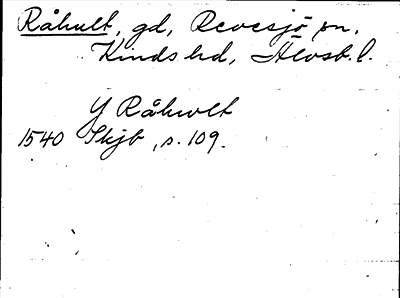 Råhult, gd, Revesjö sn,
Kinds hd, Älvsb. l.
Y Råhwlt
1540 Skjb, s. 109.